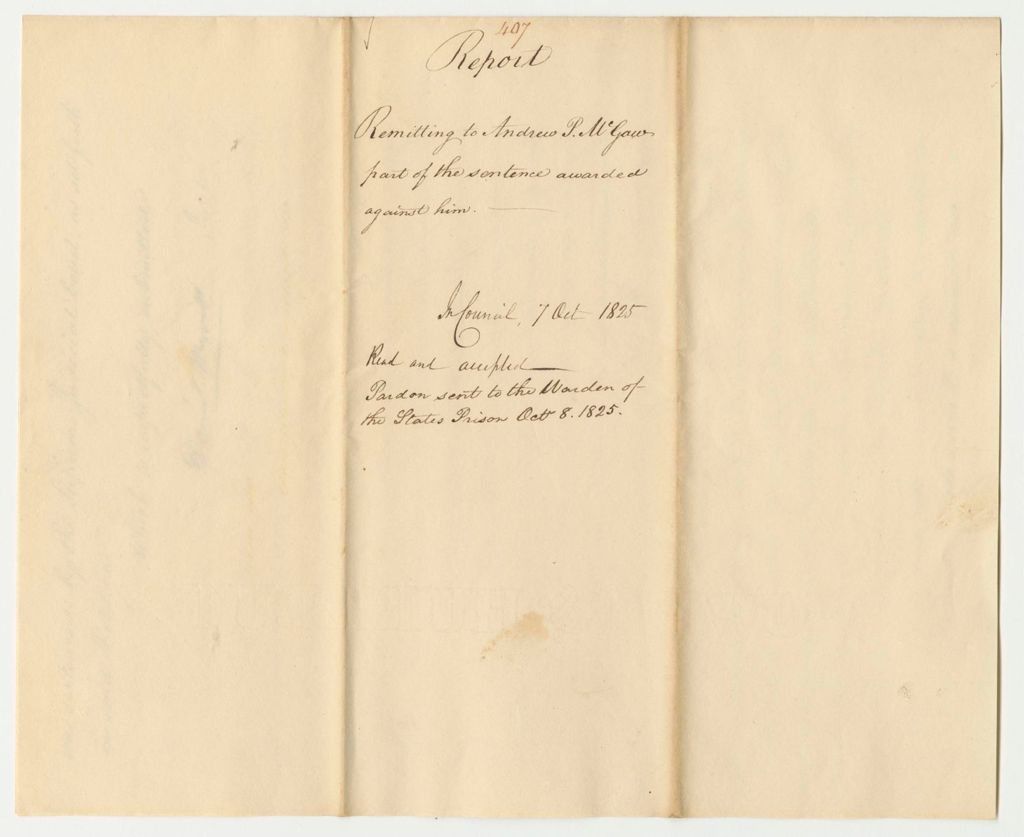 407
Report
Remitting to Andrew P. McGaw
part of the sentence awarded
against him.
In Council, 7 Oct 1825
Read and accepted
Pardon sent to the Warden of
the States Prison Octr 8. 1825.